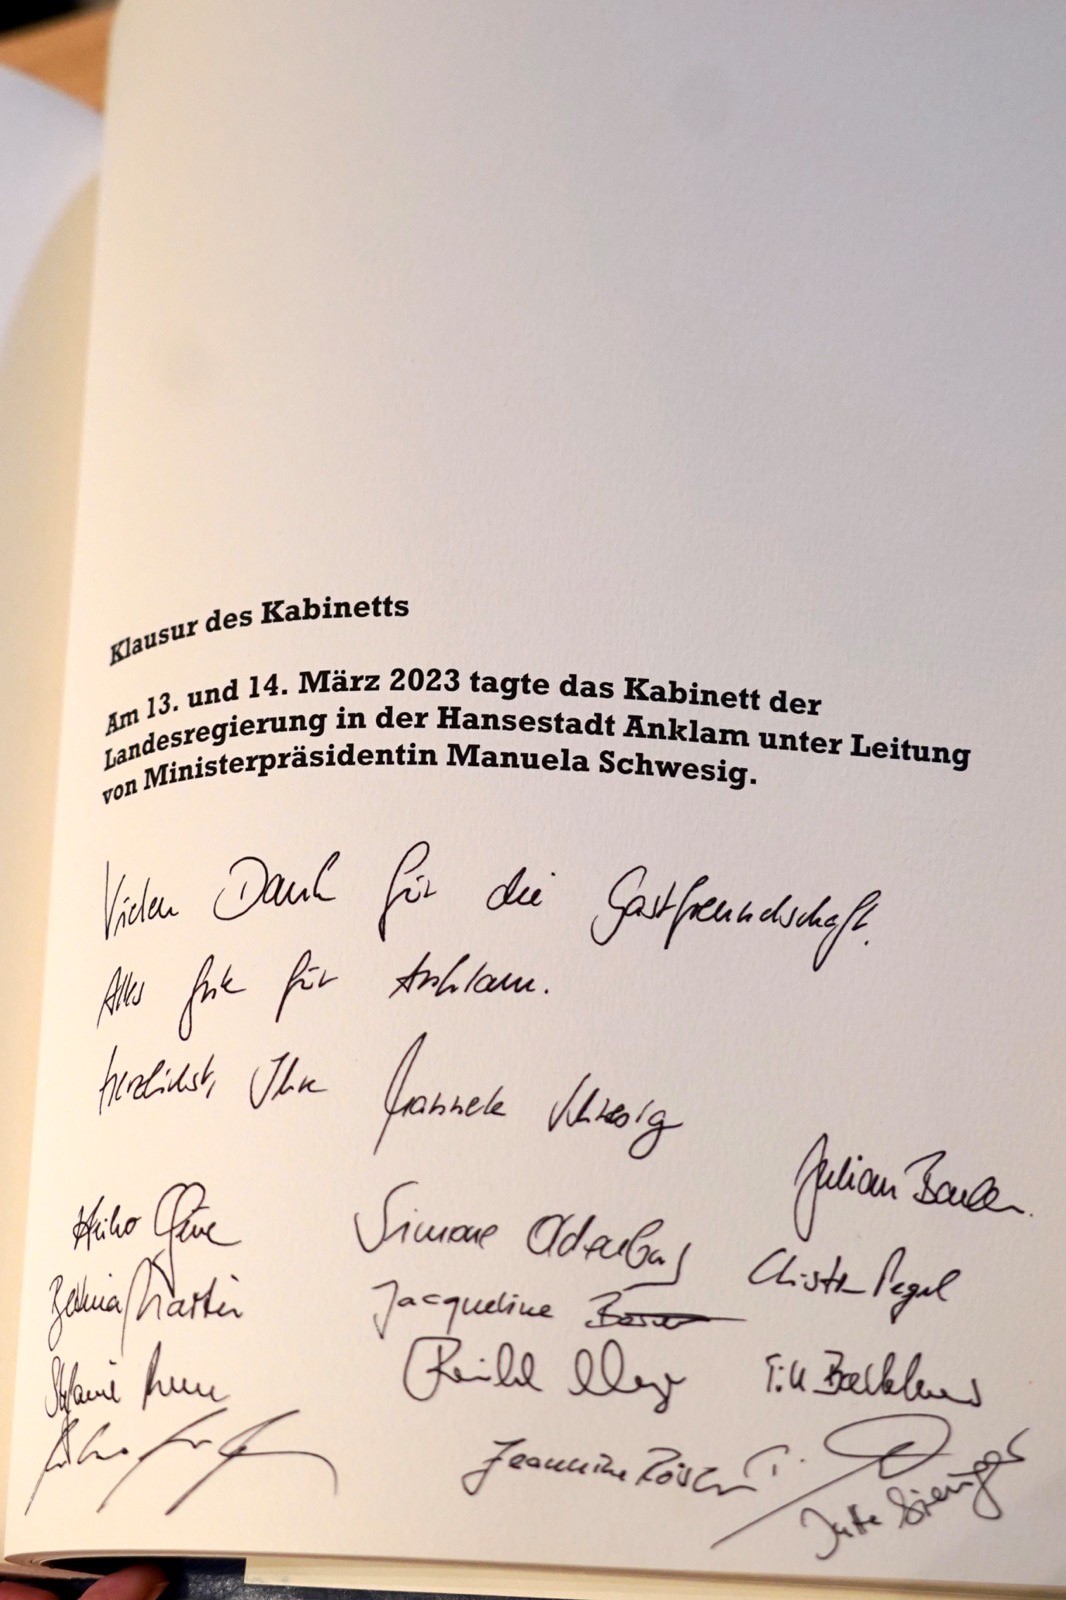 Klausur des Kabinetts
Am 13. und 14. März 2023 tagte das Kabinett der
Landesregierung in der Hansestadt Anklam unter Leitung
von Ministerpräsidentin Manuela Schwesig.
Vielen Dank für die Gastfreundschaft.
Alles Gute für Anklam.
Herzlichst, Ihre Manuela Schwesig
Julian Barlen
Heiko Geue Simone Oldenburg
Christian Pegel
Bettina Martin Jacqueline
Stefanie Drese Reinhard Meyer Till Backhaus
Jeannine Rösler
Jutta